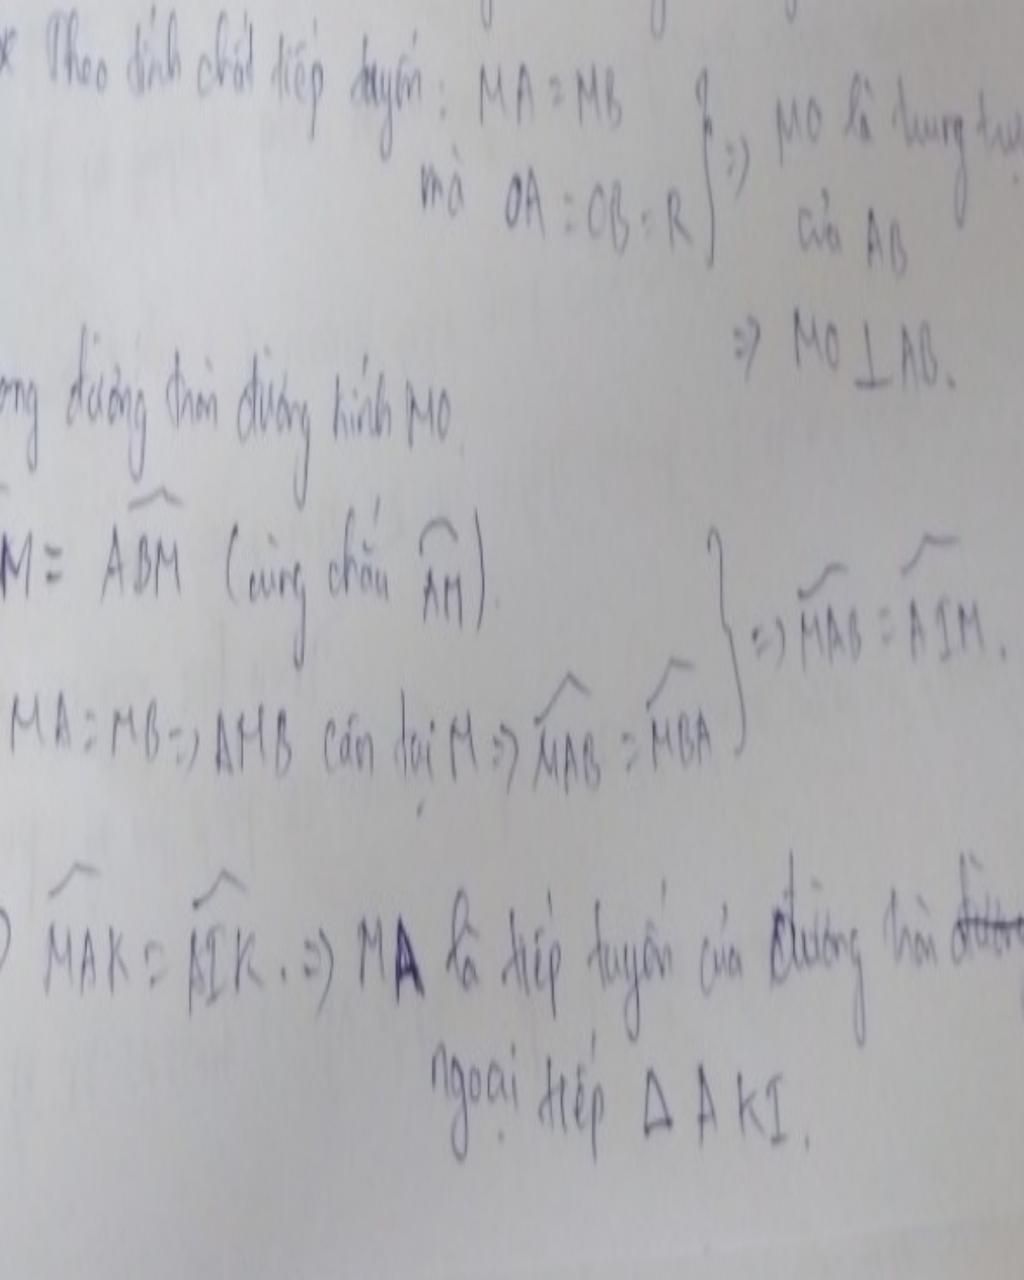 * Theo tính chất tiếp tuyến: MA = MB } => MO là trung trực
mà OA = OB = R } của AB
=> MO ⊥ AB.
ong đường tròn đường kính MO
M = ABM (cùng chắn AM)
MA = MB => AMB cân tại M => MAB = MBA } => MAB = AIM.
) MAK = AIK. => MA là tiếp tuyến của đường tròn
ngoại tiếp Δ AKI.